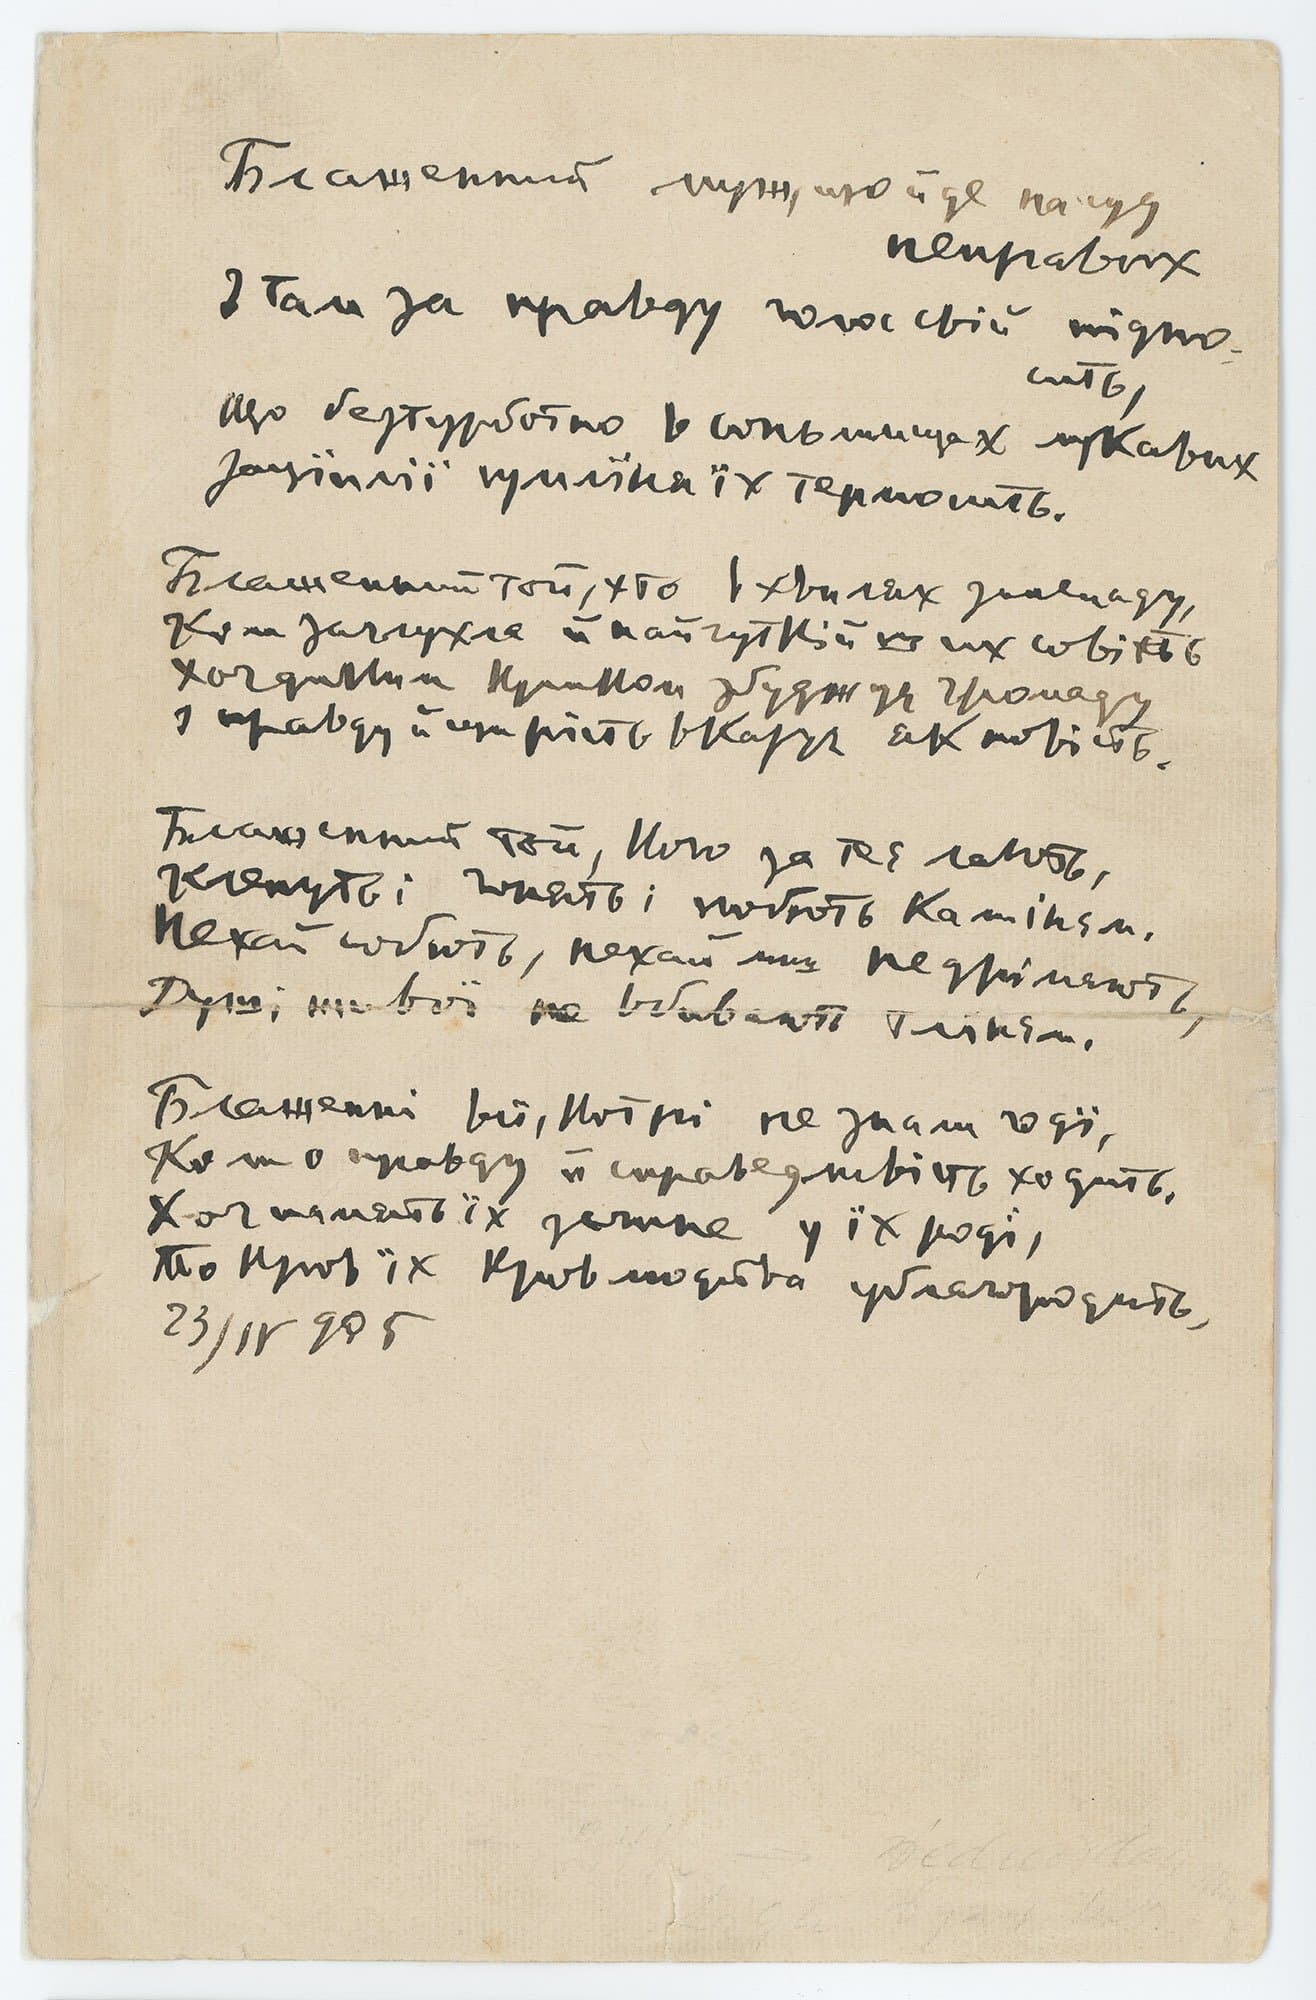 Блаженний муж, що йде на суд
неправих
І там за правду голос свій підно-
сить,
Що безтурботно в соньмищах лукавих
Заціплії сумліня їх термосить.
Блаженний той, хто в хвилях занепаду,
Коли заглухне й найчуткійших совість
Хоч диким криком збуджує громаду
І правду й щирість вказує як новість.
Блаженний той, кого за теє лають,
Кленуть і гонять і побють камінєм.
Нехай собі бють, нехай не дрімають,
Душі живої не вбивають тлінєм.
Блаженні всі, котрі не знали годі,
Коли о правду й справедливість ходить.
Хоч память їх загине у їх роді,
То кров їх кров людства ублагородить,
23/IV 905